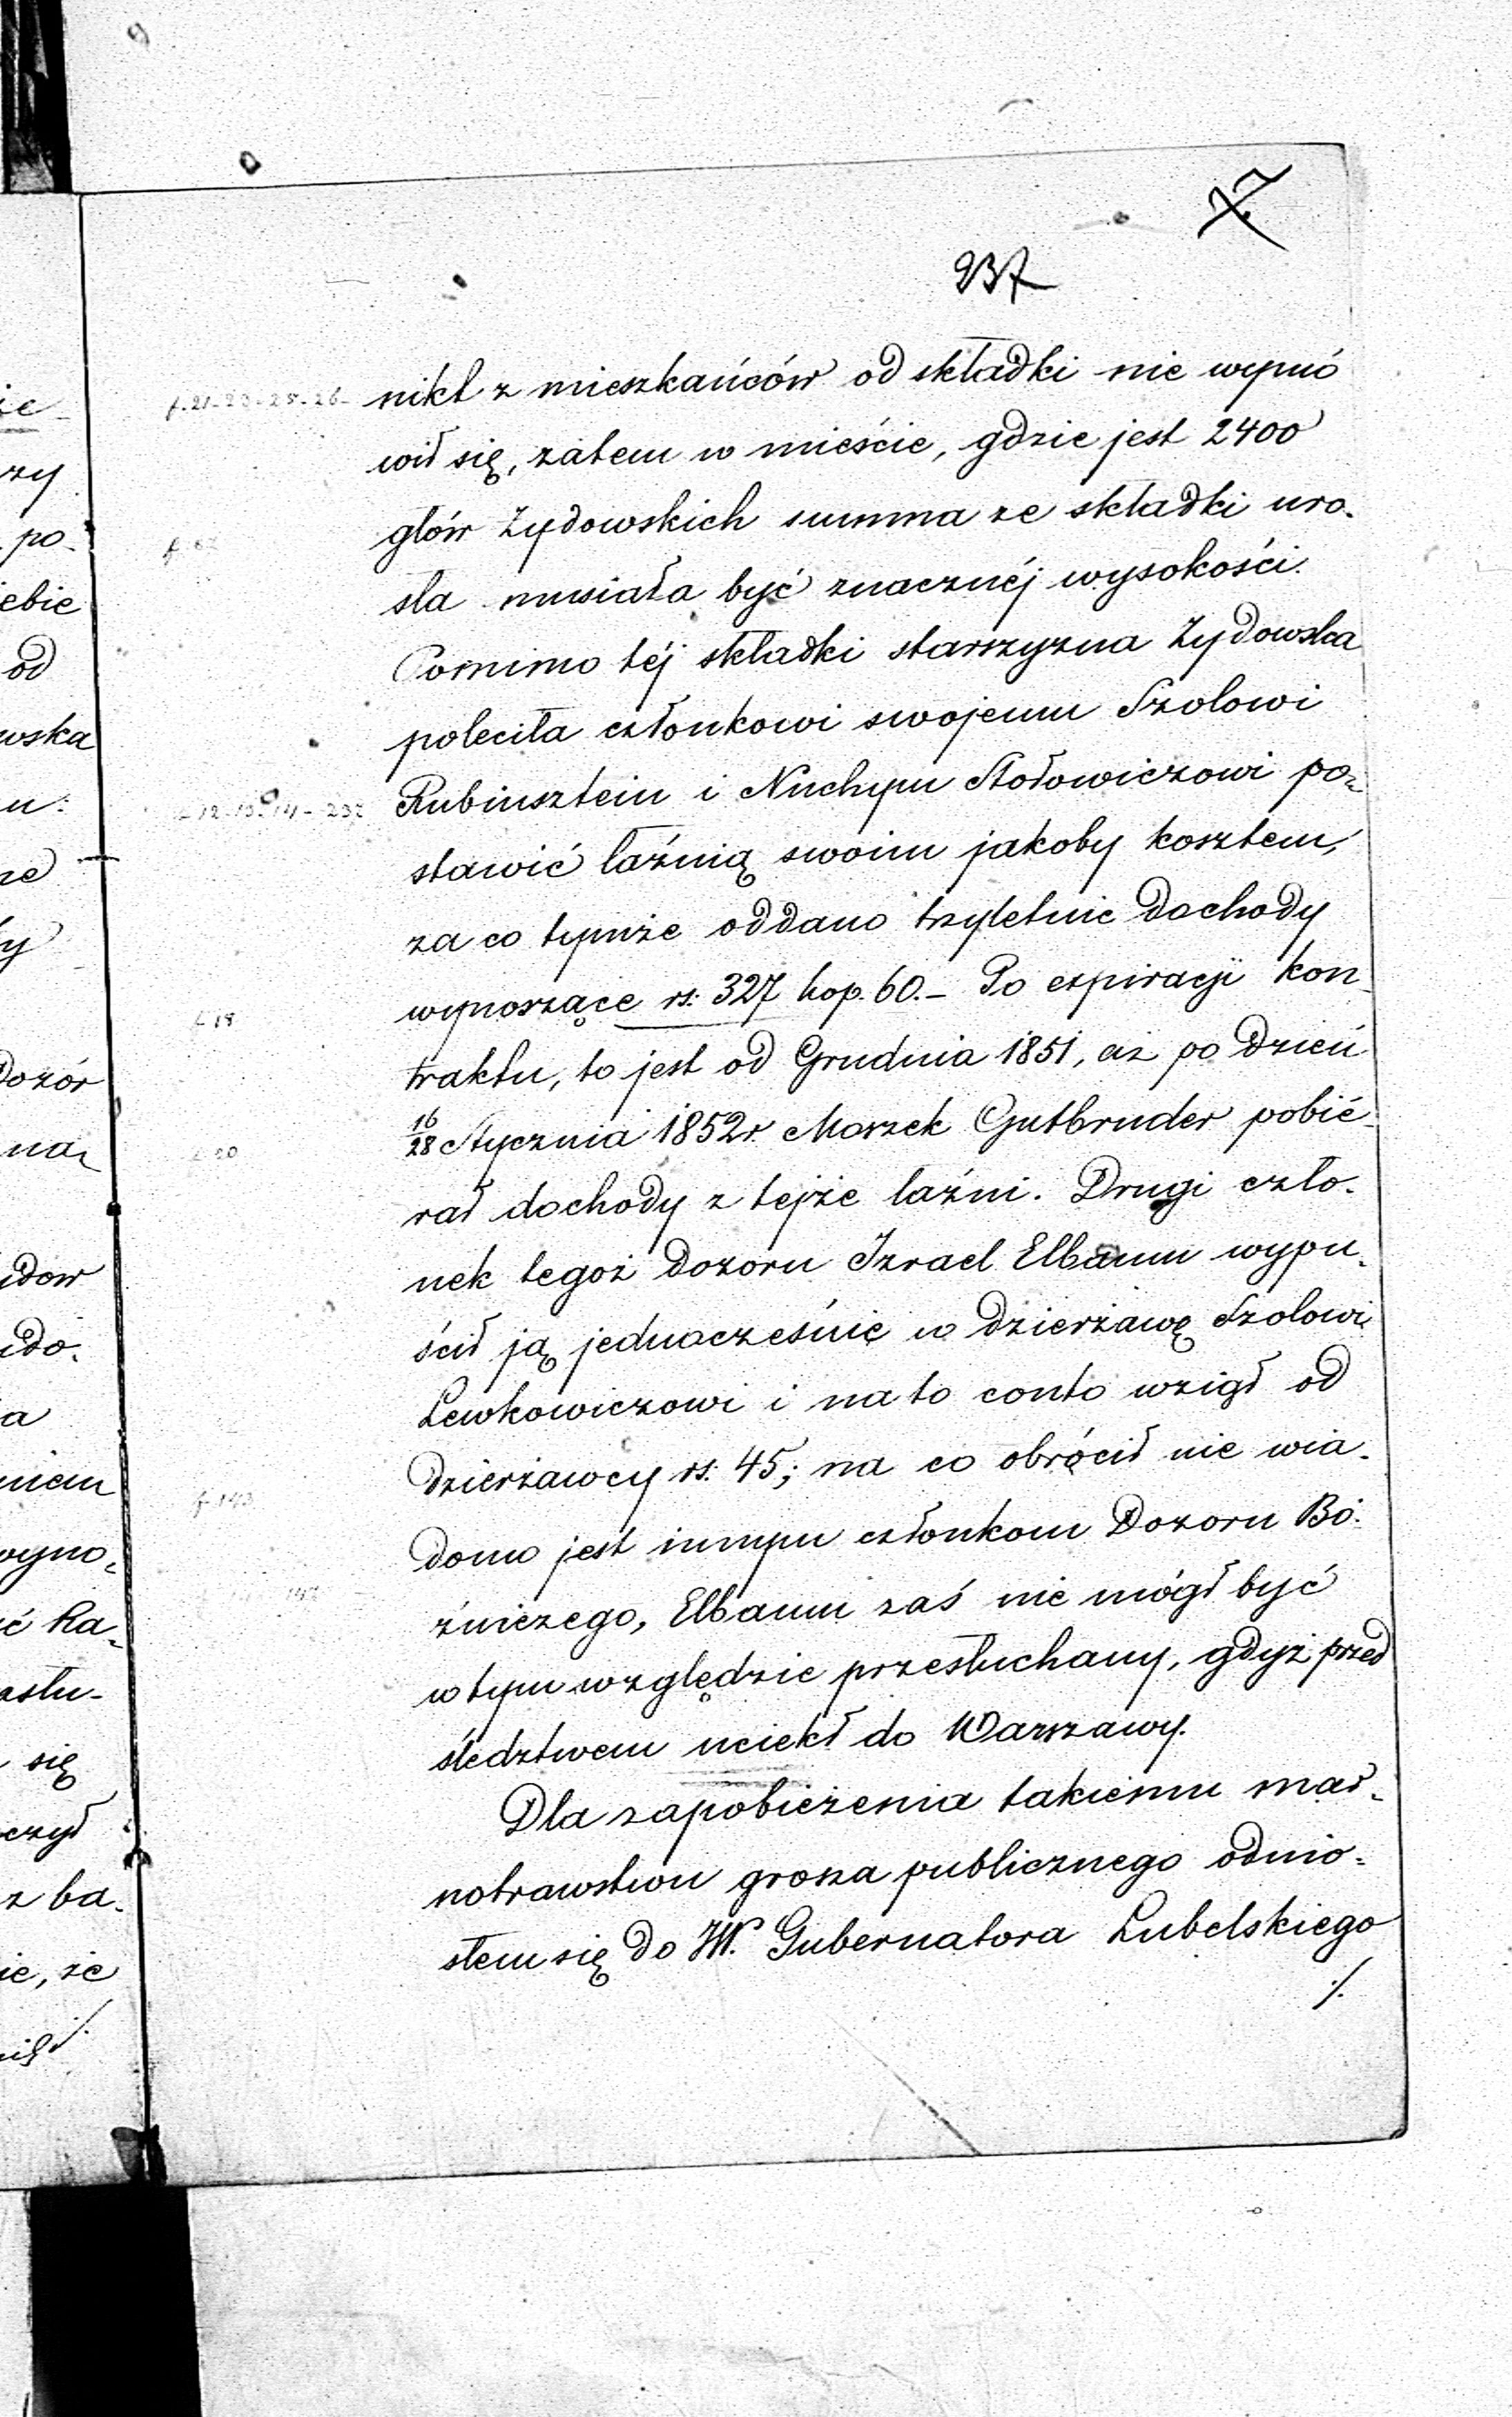 7
237
f. 21-23-25-26-
nikt z mieszkańców od składki nie wymó
wił się, zatem w mieście, gdzie jest 2400
głów Żydowskich summa ze składki uro-
sła musiała być znacznéj wysokości.
Pomimo téj składki starszyzna Żydowska
poleciła członkowi swojemu Szolowi
Rubinsztein i Nuchymu Stołowiczowi po-
stawić łaźnią swoim jakoby kosztem,
za co tymże oddano trzyletnie dochody
wynoszące rs: 327 kop. 60.- Po expiracji kon
f. 18
traktu, to jest od Grudnia 1851, aż po dzień
16/28 Stycznia 1852r. Moszek Gutbruder pobié-
f. 20
rał dochody z tejże łaźni. Drugi czło-
nek tegoż dozoru Izrael Elbaum wypu-
ścił ją jednocześnie w dzierżawę Szolowi
Lewkowiczowi i na to conto wziął od
dzierżawcy rs: 45; na co obrócił nie wia-
f. 143
domo jest innym członkom Dozoru Bó-
źniczego, Elbaum zaś nie mógł być
w tym względzie przesłuchany, gdyż przed
śledztwem uciekł do Warszawy.
Dla zapobieżenia takiemu mar-
notrawstwu grosza publicznego odnio-
słem się do JW. Gubernatora Lubelskiego
./.
że
zy
po-
ebie
od
wska
u:
ne
y
Dozór
na-
idow
ido-
a
niem
wyno-
ć ka-
astu-
się
czył
z ba-
ie, że
./.